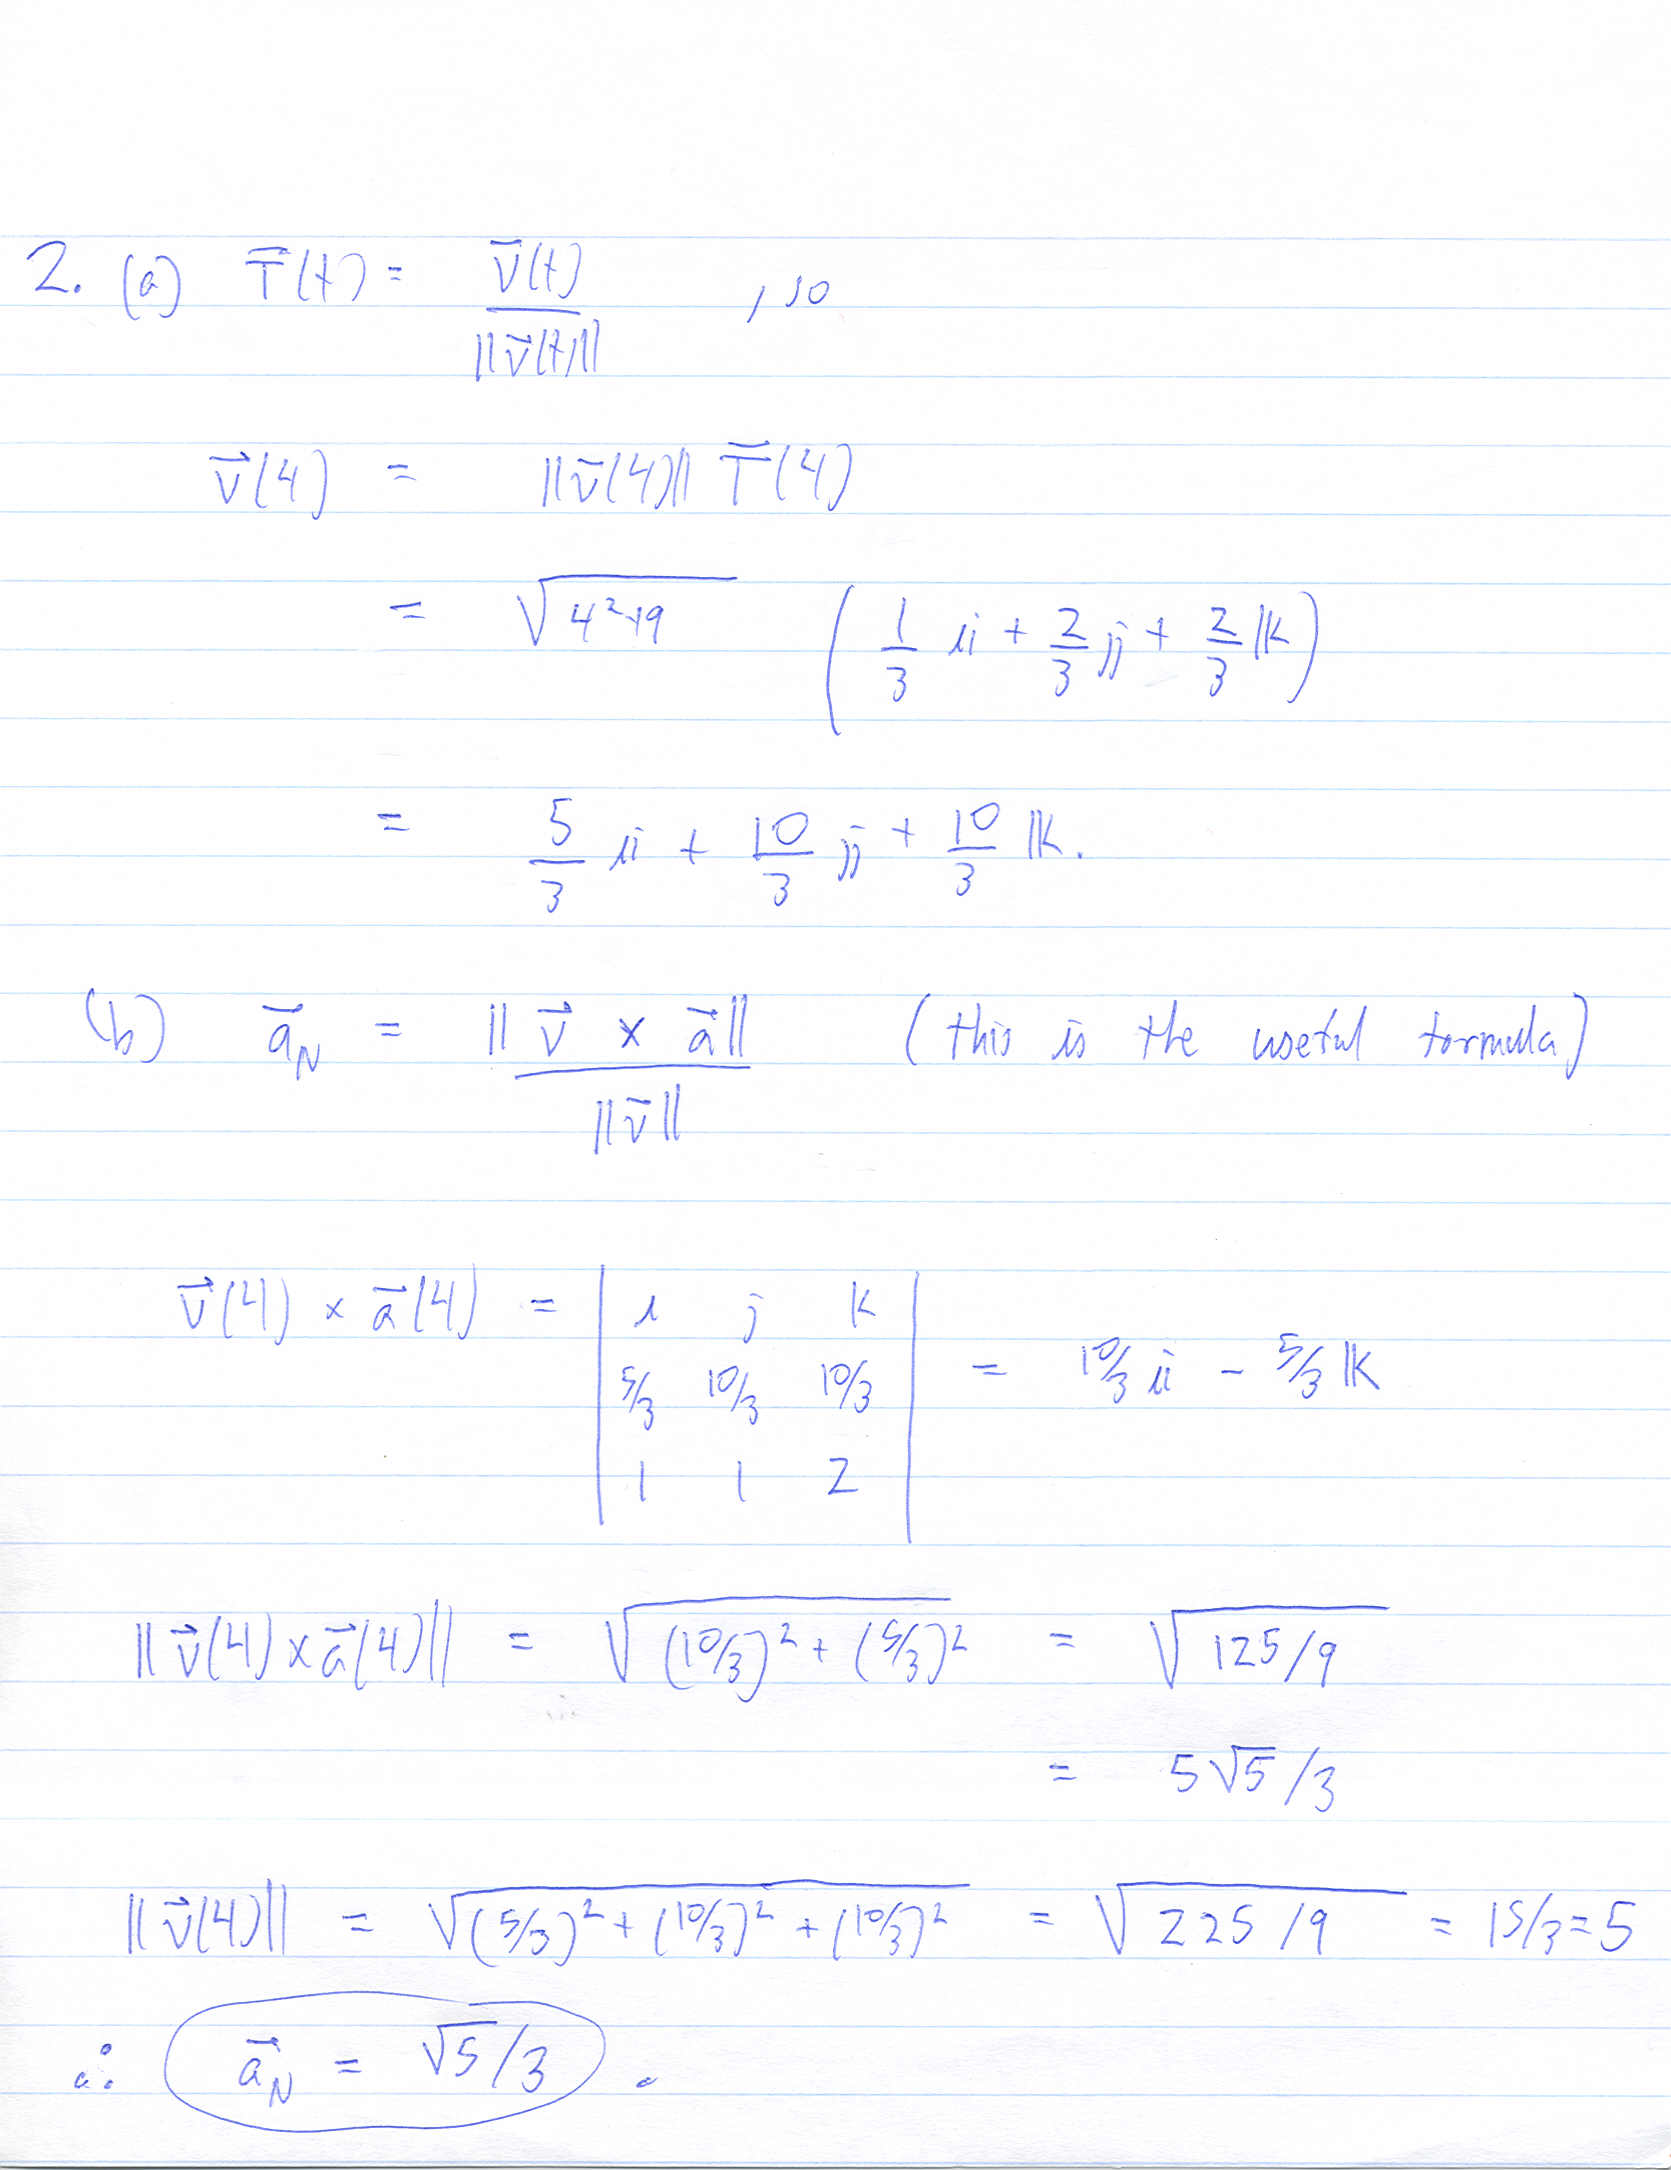 2. (a) T⃗(t) = v⃗(t) / ||v⃗(t)|| , so
v⃗(4) = ||v⃗(4)|| T⃗(4)
= √(4²+9) (1/3 i + 2/3 j + 2/3 k)
= 5/3 i + 10/3 j + 10/3 k.
(b) a⃗_N = ||v⃗ × a⃗|| / ||v⃗|| (this is the useful formula)
v⃗(4) × a⃗(4) = | i j k | = 10/3 i - 5/3 k
5/3 10/3 10/3
1 1 2
||v⃗(4) × a⃗(4)|| = √((10/3)² + (5/3)²) = √(125/9)
= 5√5/3
||v⃗(4)|| = √((5/3)² + (10/3)² + (10/3)²) = √(225/9) = 15/3 = 5
∴ a⃗_N = √5/3 .